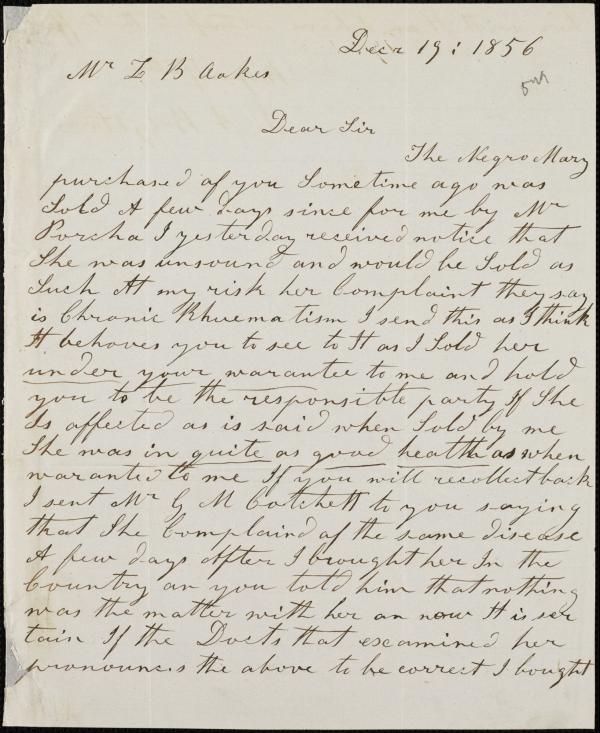 Decr 19: 1856
Mr Z B Oakes
Dear Sir
The Negro Mary
purchased of you Sometime ago was
Sold A few days since for me by Mr
Porcha I yesterday received notice that
She was unsound and would be Sold as
Such At my risk her Complaint they say
is Chronic Rhuematism I send this as I think
It behoves you to see to It as I Sold her
under your warantee to me and hold
you to be the responsible party If She
Is affected as is said when Sold by me
She was in quite as good health as when
waranted to me If you will recollect back
I sent Mr G M Cotchett to you saying
that She Complaind of the same disease
A few days After I brought her In the
Country an you told him that nothing
was the matter with her an now It is ser
tain If the Docts that examined her
pronounces the above to be correct I bought